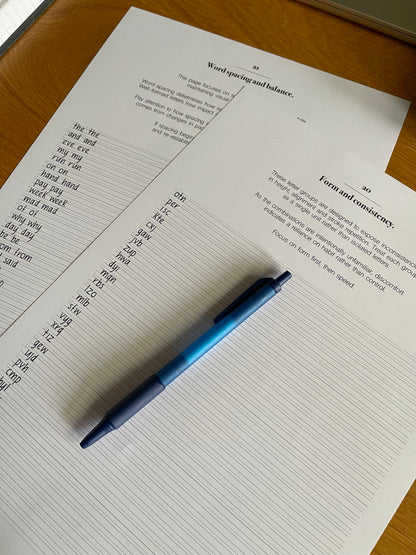 21
Word spacing and balance.
This page focuses on
maintaining visual
Word spacing determines how
Well-formed letters lose impact
Pay attention to how spacing
comes from changes in
If spacing
and
the the
and and
eve eve
my my
run run
on on
hand hand
pay pay
week week
mad mad
of of
why why
day day
be be
from from
said
20
Form and consistency.
These letter groups are designed to expose inconsistencies
in height, alignment and stroke repetition. Treat each group
as a single unit rather than isolated letters.
As the combinations are intentionally unfamiliar, discomfort
indicates a reliance on habit rather than control.
Focus on form first, then speed.
otn
per
isc
kfe
cxj
gaw
jvb
zup
hwa
dyi
mqn
rbs
lzo
mlb
sfw
vyg
xrq
tiz
gew
ujd
pvh
cmp